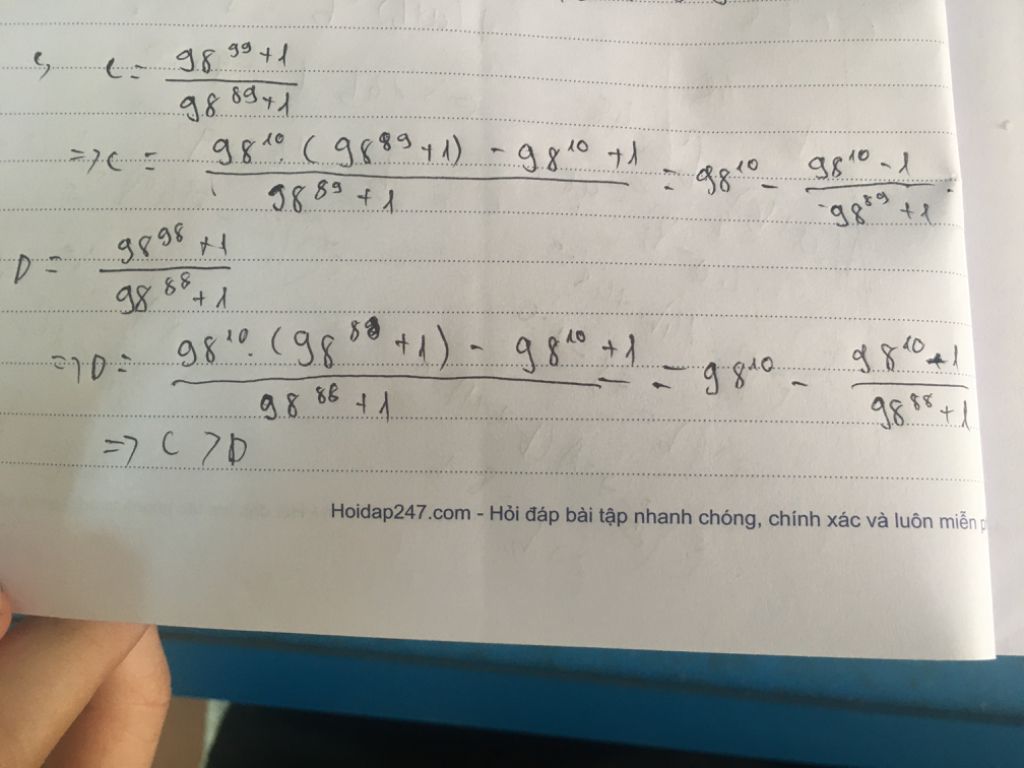 c, C = \frac{98^{99}+1}{98^{89}+1}
=> C = \frac{98^{10}.(98^{89}+1) - 98^{10}+1}{98^{89}+1} = 98^{10} - \frac{98^{10}-1}{98^{89}+1}.
D = \frac{98^{98}+1}{98^{88}+1}
=> D = \frac{98^{10}.(98^{88}+1) - 98^{10}+1}{98^{88}+1} = 98^{10} - \frac{98^{10}-1}{98^{88}+1}
=> C > D
Hoidap247.com - Hỏi đáp bài tập nhanh chóng, chính xác và luôn miễn